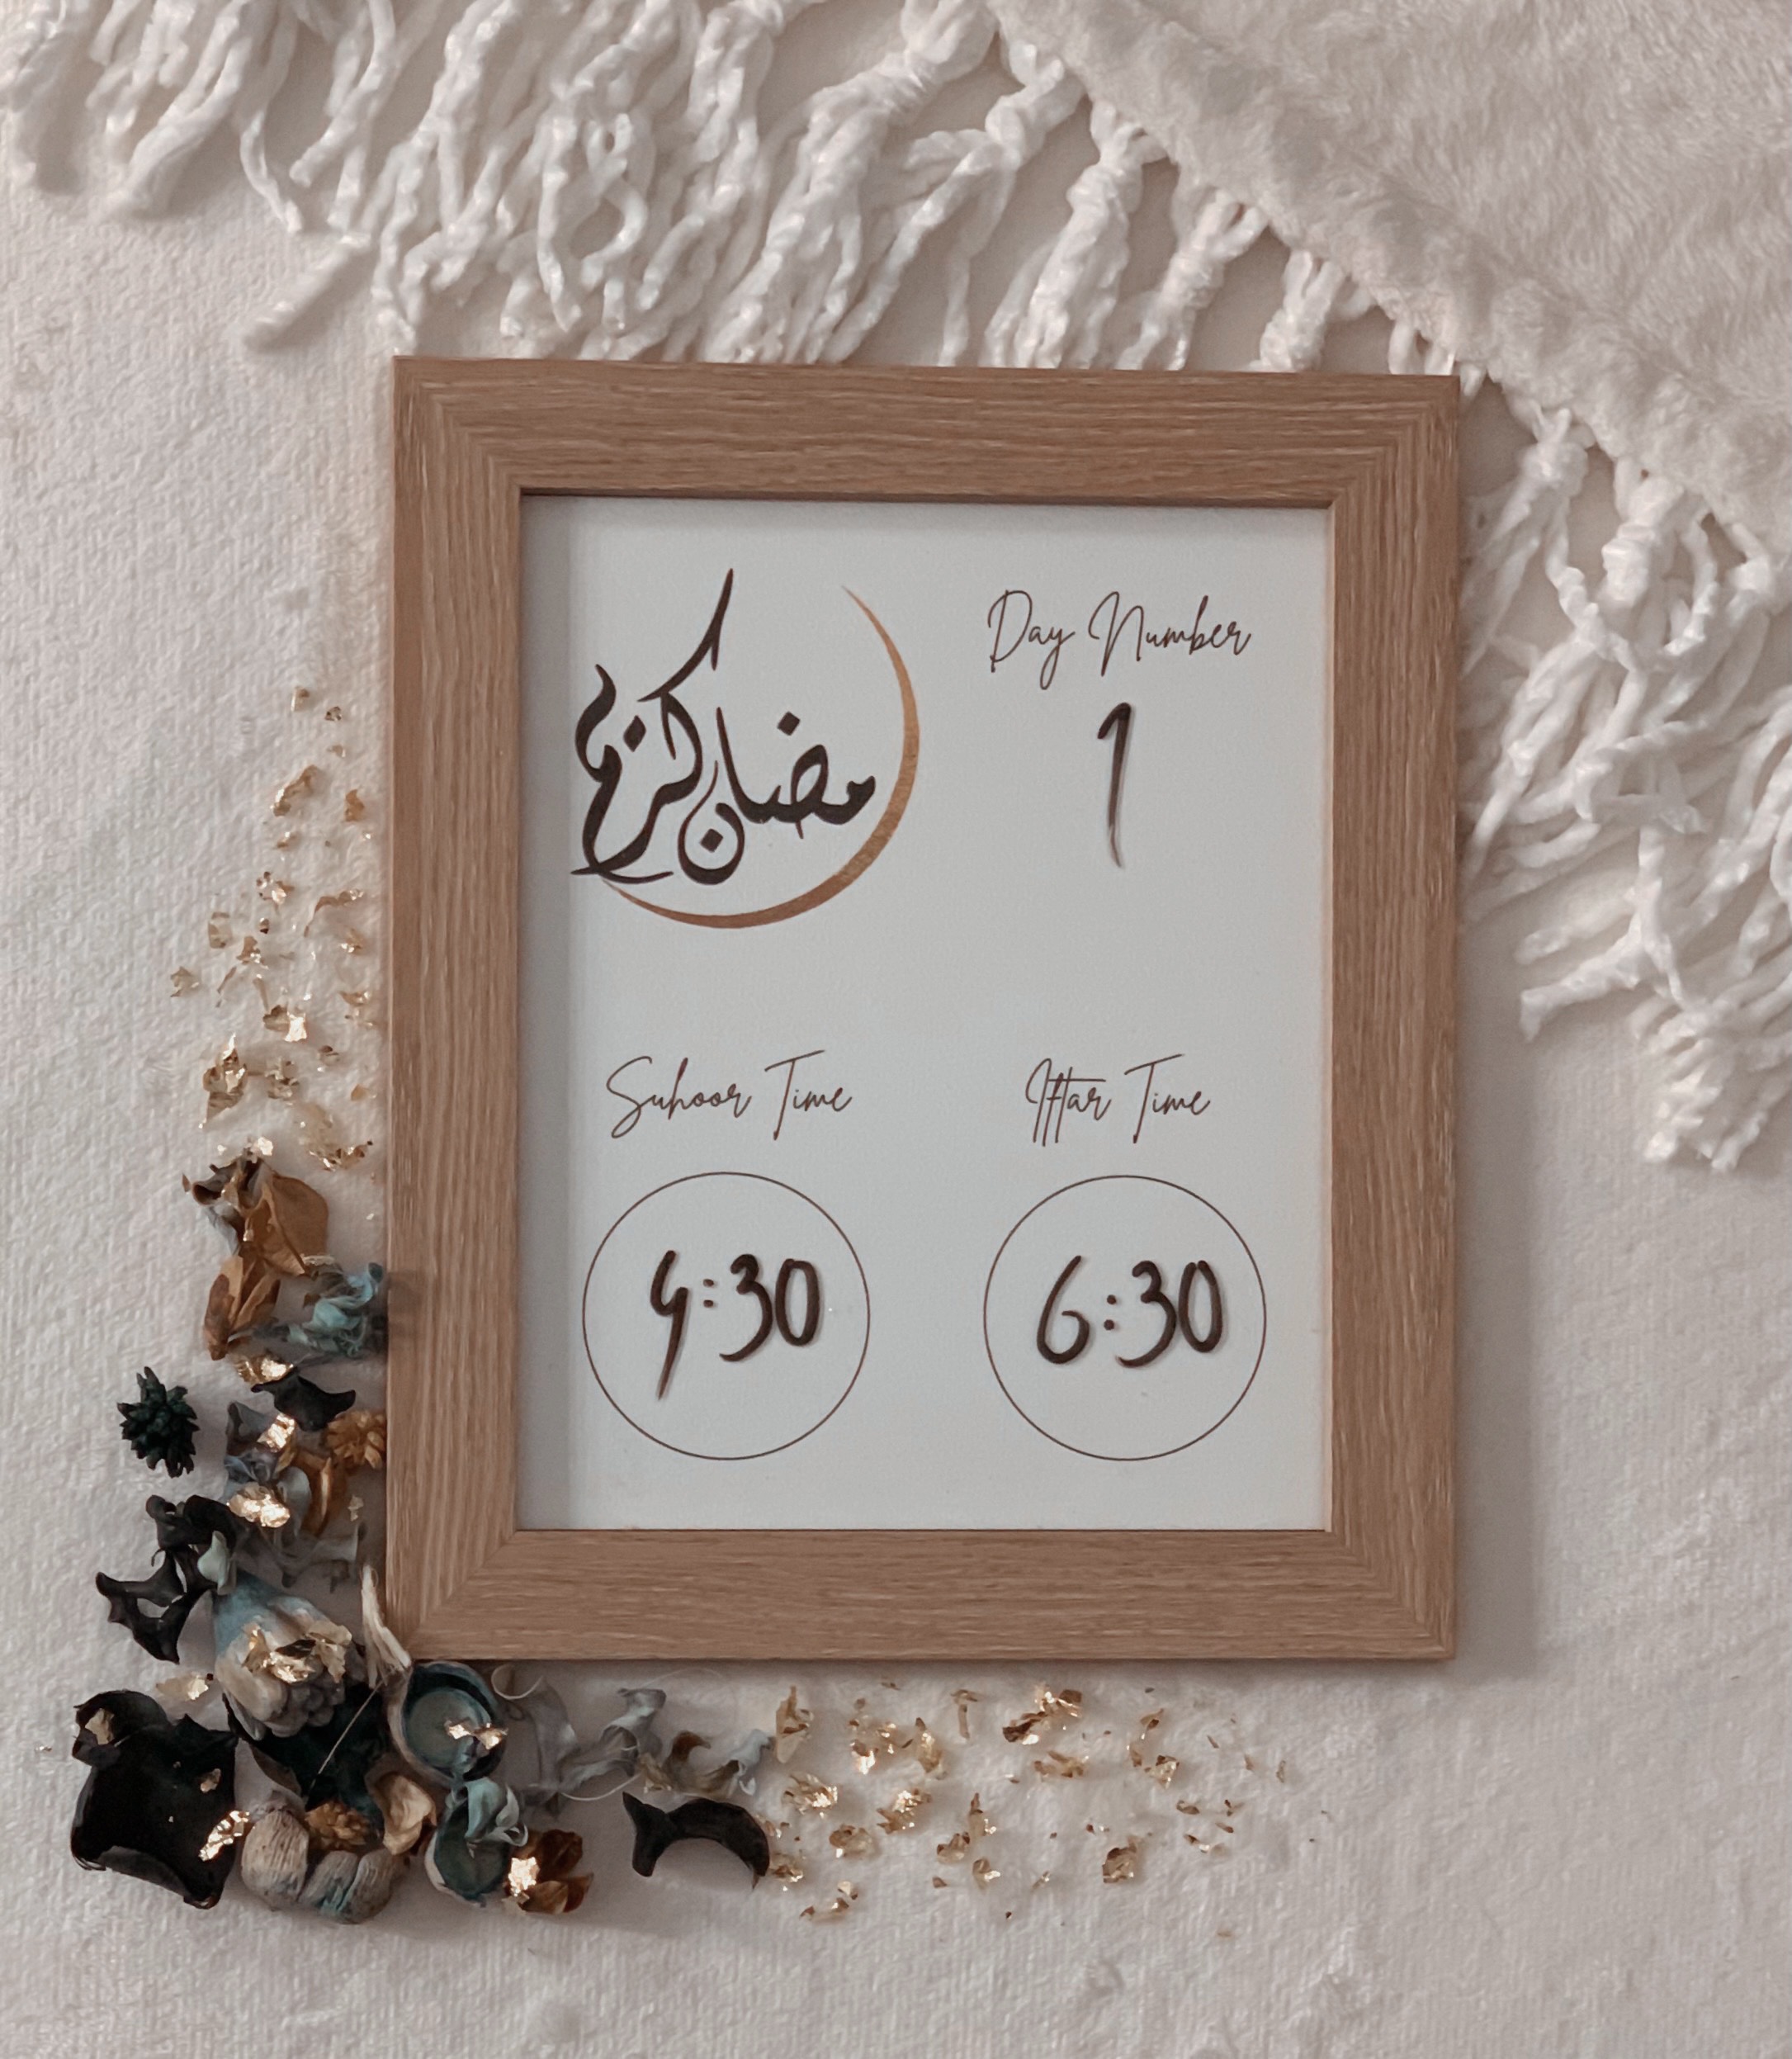 رمضان كريم
Day Number
1
Suhoor Time
Iftar Time
4:30
6:30